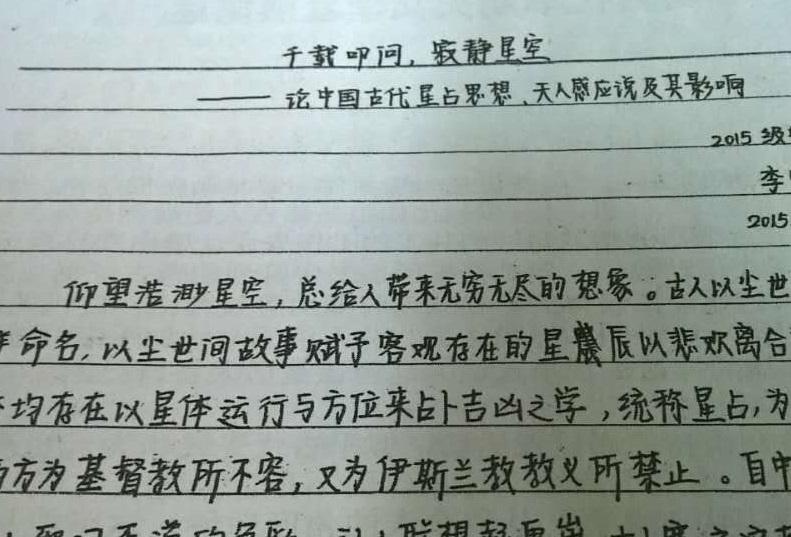 千载叩问，寂静星空
—— 论中国古代星占思想、天人感应说及其影响
2015 级
李
2015
仰望浩渺星空，总给人带来无穷无尽的想象。古人以尘世
命名，以尘世间故事赋予客观存在的星辰以悲欢离合
均存在以星体运行与方位来占卜吉凶之学，统称星占，为
方为基督教所不容，又为伊斯兰教教义所禁止。自中